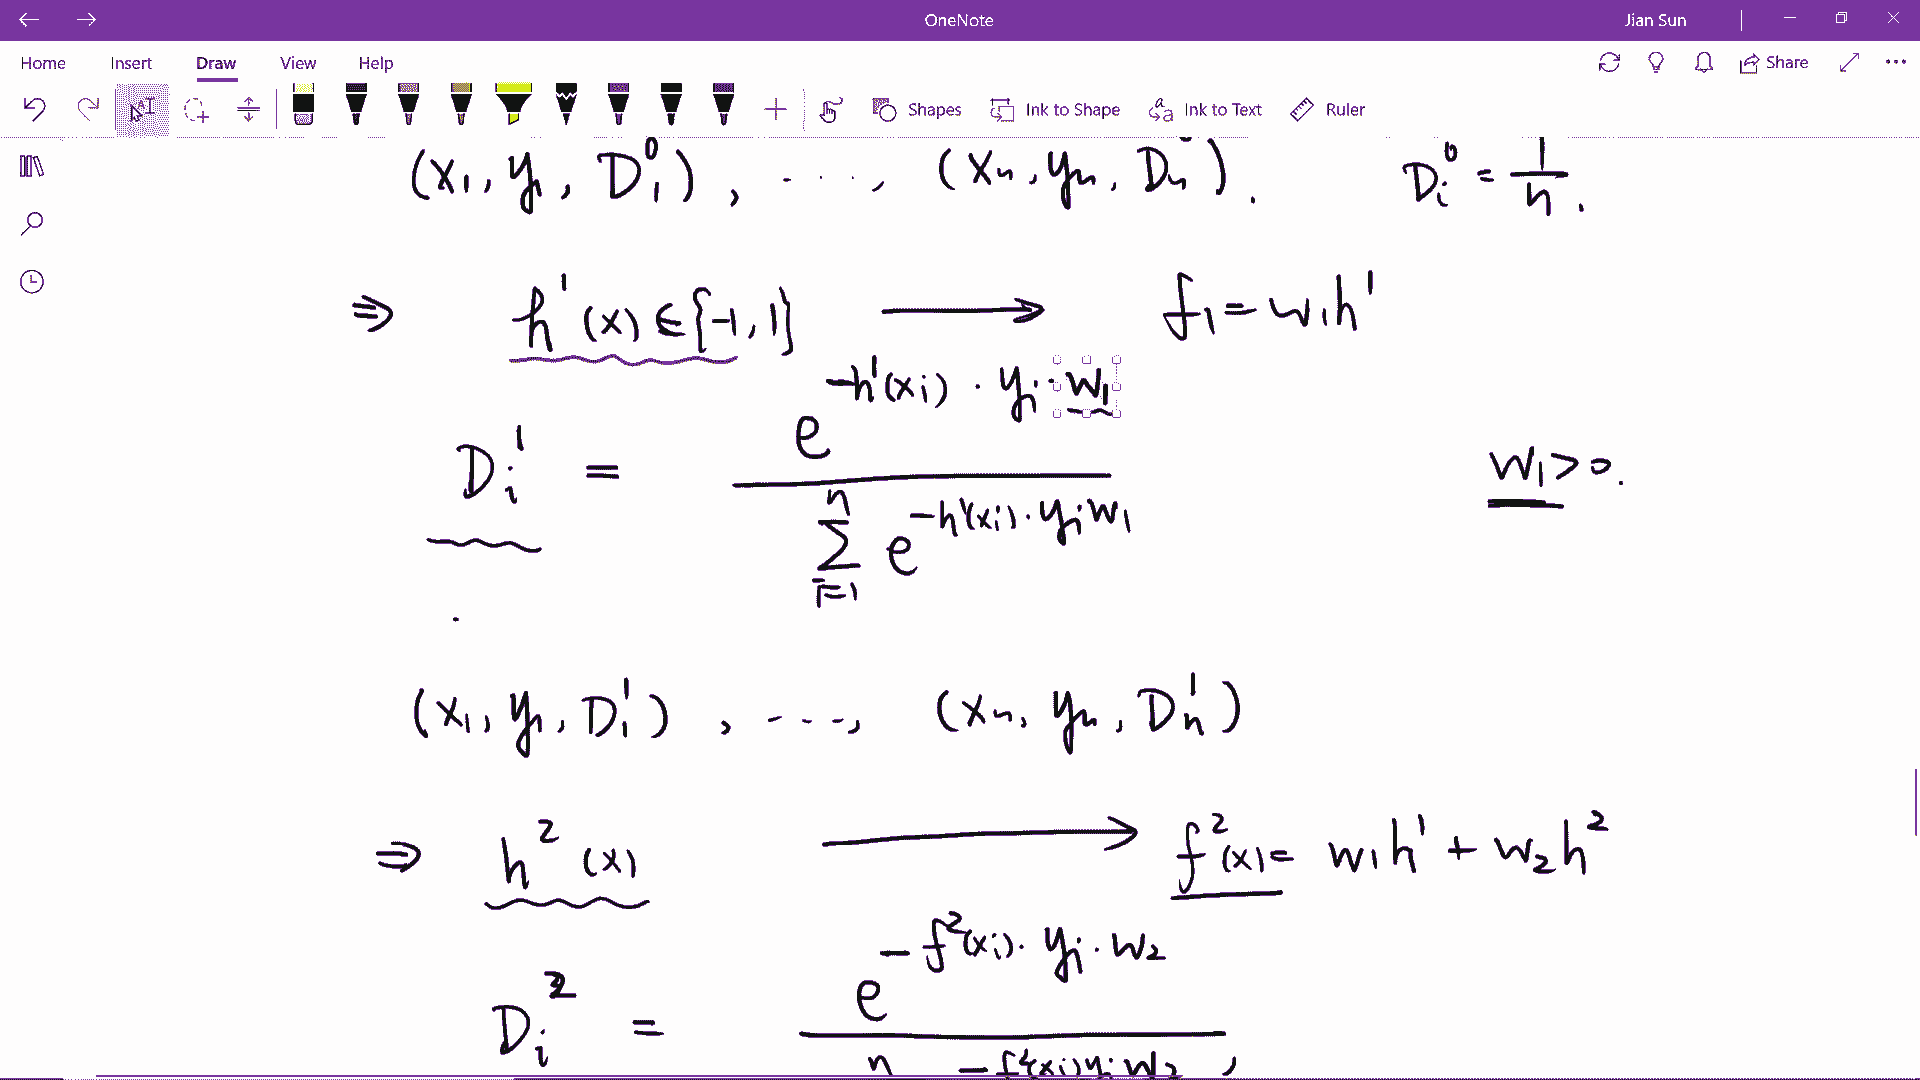 OneNote
Jian Sun
Home Insert Draw View Help
Share
Shapes Ink to Shape Ink to Text Ruler
(x₁, y₁, D₁⁰), ····, (xₙ, yₙ, Dₙ). Dᵢ⁰ = 1/n.
⇒ h¹(x) ∈ {-1, 1} ⟶ f₁ = w₁h¹
Dᵢ¹ = e^{-h¹(xᵢ) · yᵢ · w₁} / ∑_{i=1}^{n} e^{-h¹(xᵢ) · yᵢ w₁} w₁ > 0.
(x₁, y₁, D₁¹), ----, (xₙ, yₙ, Dₙ¹)
⇒ h²(x) ⟶ f²(x) = w₁h¹ + w₂h²
Dᵢ² = e^{-f²(xᵢ) · yᵢ · w₂}
n -f²(xᵢ) yᵢ w₂